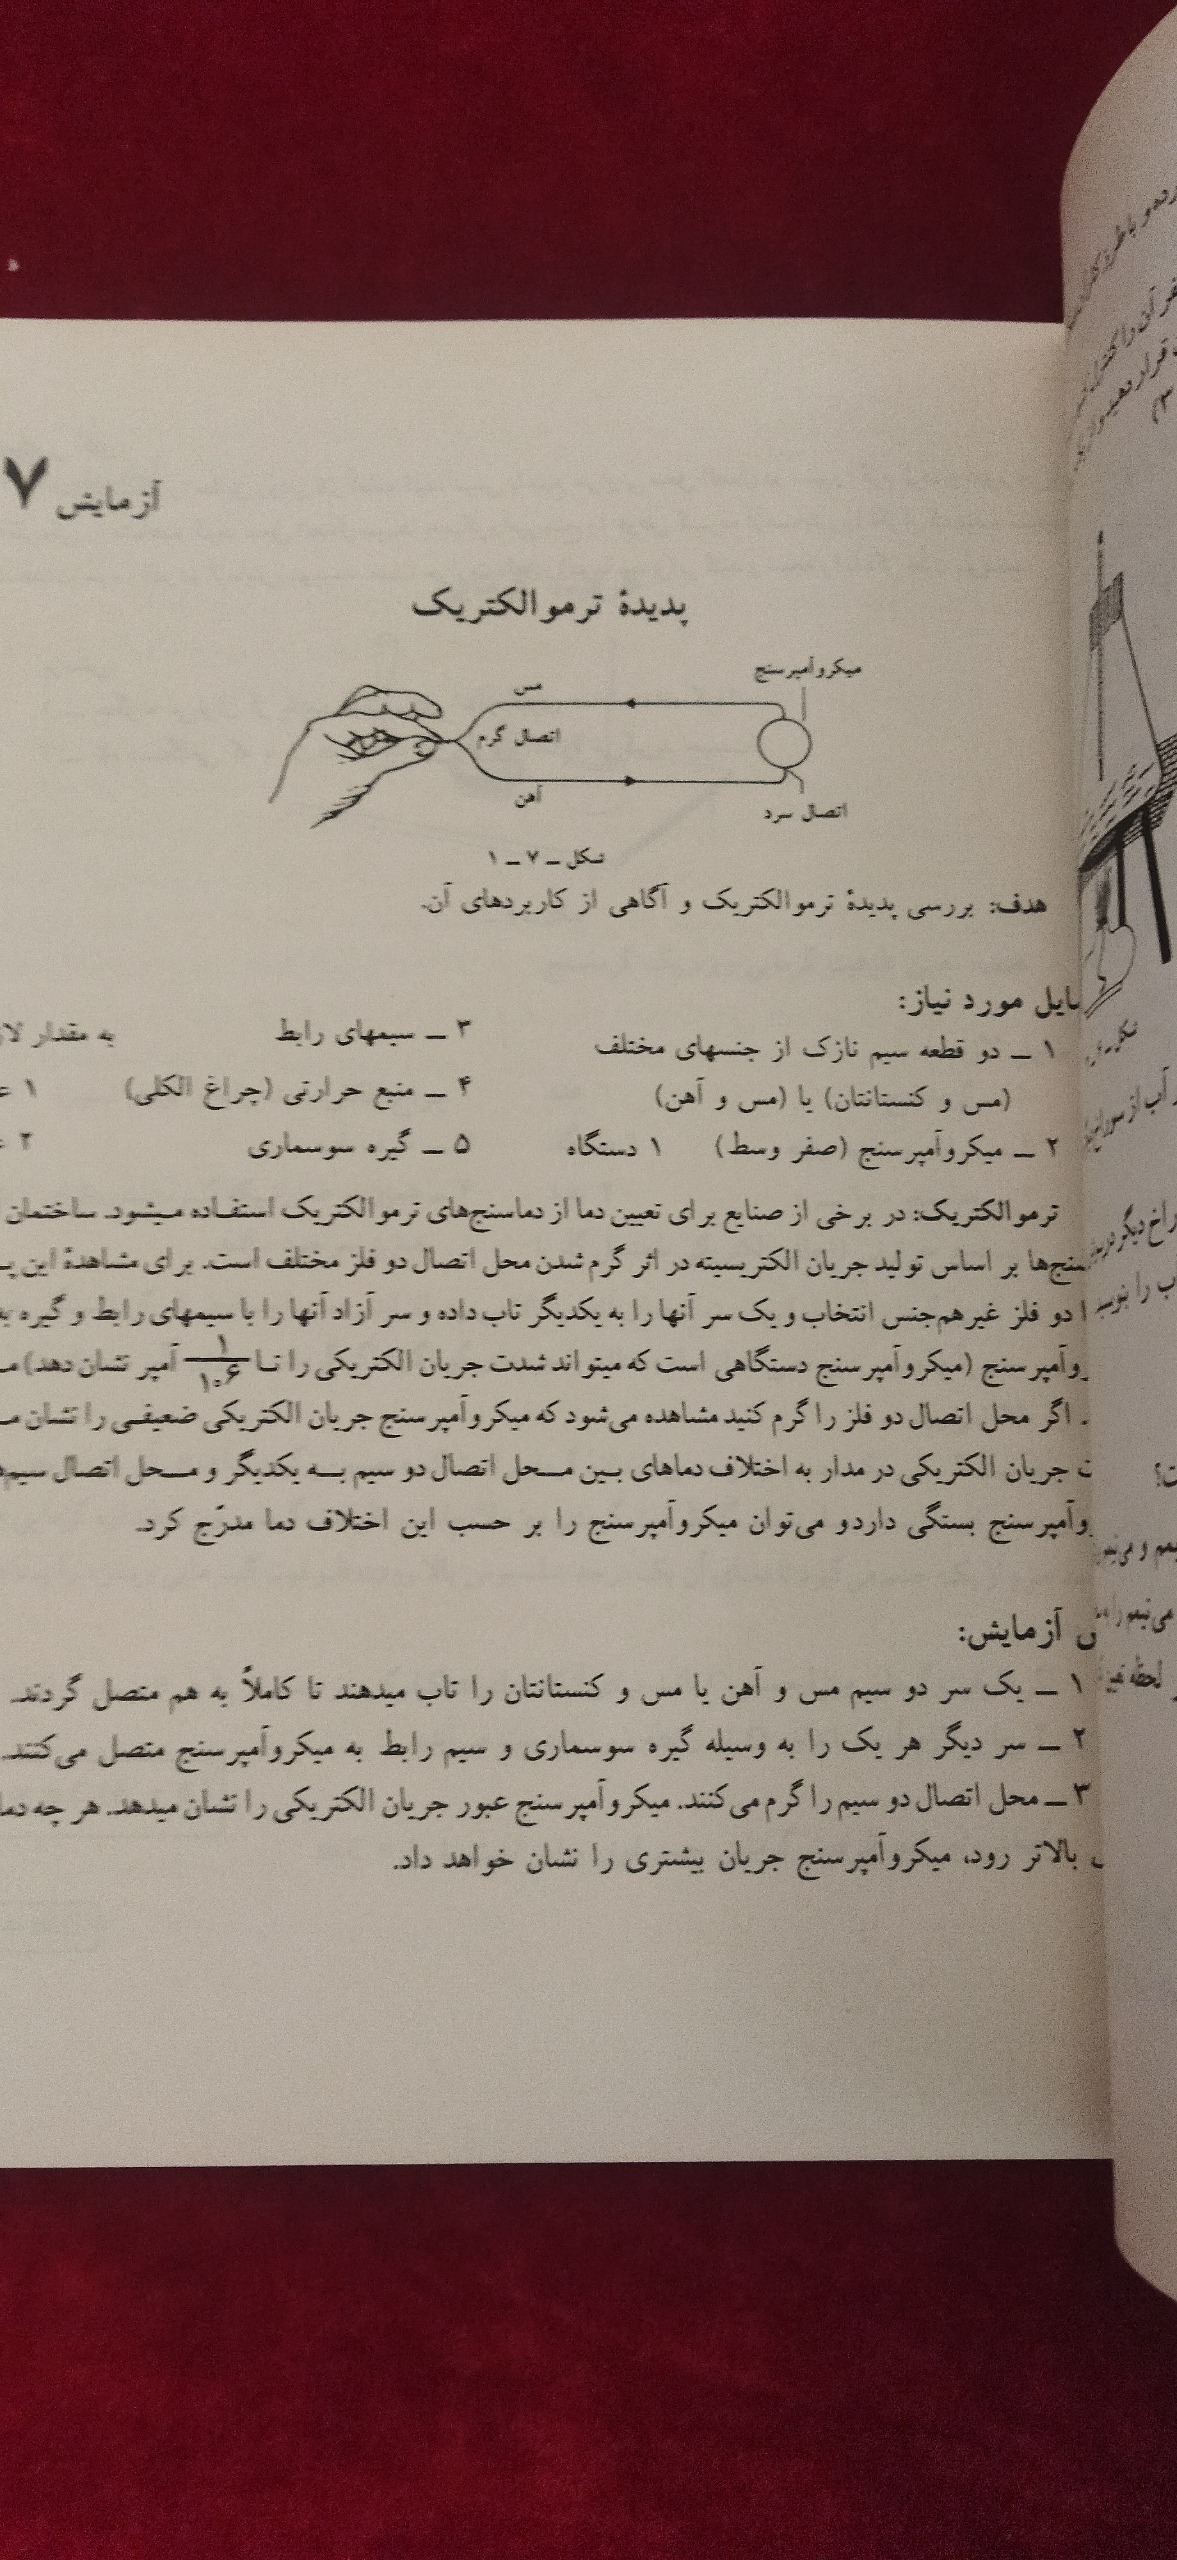 آزمایش ۷
پدیدهٔ ترموالکتریک
میکروآمپرسنج
مس
اتصال گرم
آهن
اتصال سرد
شکل ـ ۷ ـ ۱
هدف: بررسی پدیدهٔ ترموالکتریک و آگاهی از کاربردهای آن.
مورد نیاز:
۱ ـ دو قطعه سیم نازک از جنسهای مختلف
(مس و کنستانتان) یا (مس و آهن)
۲ ـ میکروآمپرسنج (صفر وسط) ۱ دستگاه
۳ ـ سیمهای رابط به مقدار
۴ ـ منبع حرارتی (چراغ الکلی) ۱
۵ ـ گیره سوسماری ۲
ترموالکتریک: در برخی از صنایع برای تعیین دما از دماسنج‌های ترموالکتریک استفاده میشود. ساختمان
سنج‌ها بر اساس تولید جریان الکتریسیته در اثر گرم شدن محل اتصال دو فلز مختلف است. برای مشاهدهٔ این
دو فلز غیرهم‌جنس انتخاب و یک سر آنها را به یکدیگر تاب داده و سر آزاد آنها را با سیمهای رابط و گیره
وآمپرسنج (میکروآمپرسنج دستگاهی است که میتواند شدت جریان الکتریکی را تا ۱/۱۰۶ آمپر نشان دهد)
اگر محل اتصال دو فلز را گرم کنید مشاهده می‌شود که میکروآمپرسنج جریان الکتریکی ضعیفی را نشان
جریان الکتریکی در مدار به اختلاف دماهای بین محل اتصال دو سیم به یکدیگر و محل اتصال
وآمپرسنج بستگی داردو می‌توان میکروآمپرسنج را بر حسب این اختلاف دما مدرّج کرد.
آزمایش:
۱ ـ یک سر دو سیم مس و آهن یا مس و کنستانتان را تاب میدهند تا کاملاً به هم متصل گردند.
۲ ـ سر دیگر هر یک را به وسیله گیره سوسماری و سیم رابط به میکروآمپرسنج متصل می‌کنند.
۳ ـ محل اتصال دو سیم را گرم می‌کنند. میکروآمپرسنج عبور جریان الکتریکی را نشان میدهد. هر چه
بالاتر رود، میکروآمپرسنج جریان بیشتری را نشان خواهد داد.